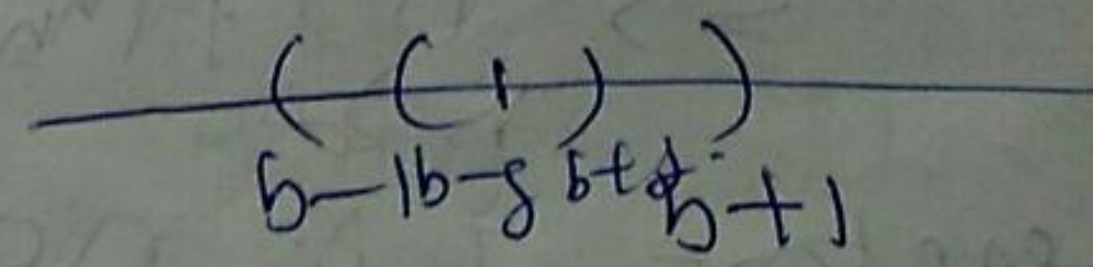 ( ( | ) )
b-1 b-δ b+δ b+1